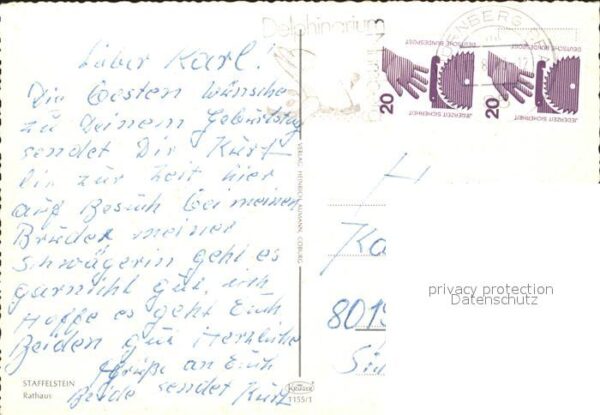 Delphinarium
NÜRNBERG
DEUTSCHE BUNDESPOST
DEUTSCHE BUNDESPOST
20
20
JEDERZEIT SICHERHEIT
JEDERZEIT SICHERHEIT
Lieber Karl!
Die besten Wünsche
zu Deinem Geburtstag
sendet Dir Kurt
bin zur Zeit hier
auf Besuch bei meinen
Bruder meiner
Schwägerin geht es
garnicht gut, ich
Hoffe es geht Euch
Beiden gut Herzliche
Grüße an Euch
Beide sendet Kurt
VERLAG HEINRICH COBURG
H
Ka
8019
privacy protection
Datenschutz
STAFFELSTEIN
Rathaus
1155/1